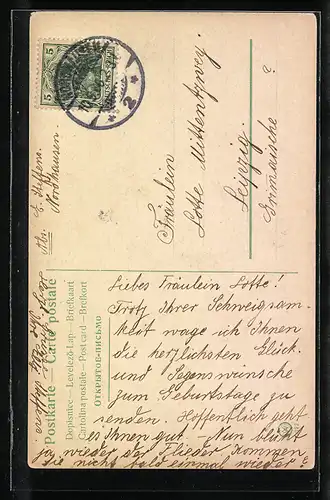 Postkarte — Carte postale
Dopisnice — Levelező-Lap — Briefkaart
Cartolina postale — Post card — Brefkort
ОТКРЫТОЕ ПИСЬМО
5
5
2
Abs.
E. Steffens.
Nordhausen.
Fräulein
Lotte Mittentzwey.
Leipzig.
Liebes Fräulein Lotte!
Trotz Ihrer Schweigsam-
keit wage ich Ihnen
die herzlichsten Glück-
und Segenswünsche
zum Geburtstage zu
senden. Hoffentlich geht
es Ihnen gut. – Nun blüht
ja wieder der Flieder. Kommen
Sie nicht bald einmal wieder?